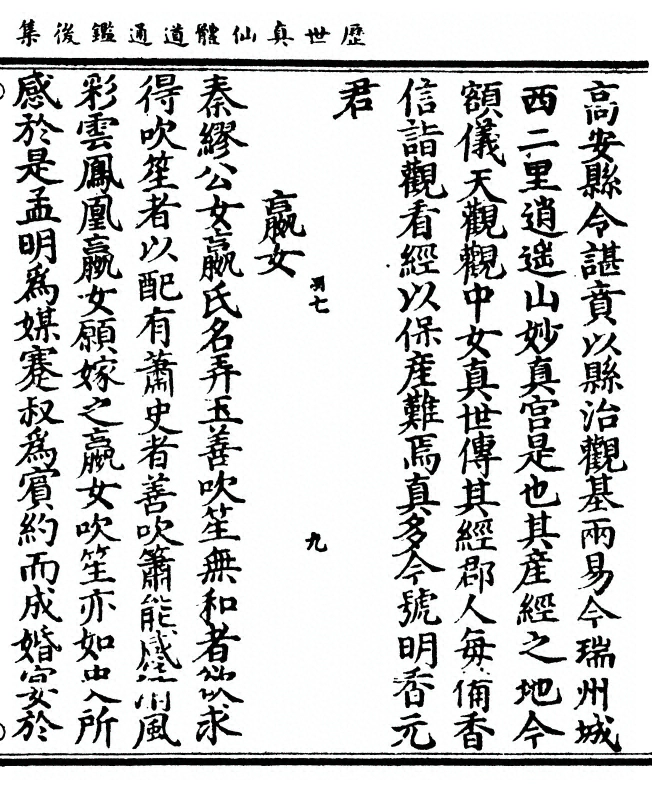 歷世真仙體道通鑑後集
高安縣令諶賁以縣治觀基兩易今瑞州城
西二里逍遙山妙真宮是也其產經之地今
額儀天觀觀中女真世傳其經郡人每備香
信詣觀看經以保產難焉真多今號明香元
君
嬴女
羽七
九
秦繆公女嬴氏名弄玉善吹笙無和者欲求
得吹笙者以配有蕭史者善吹簫能感清風
彩雲鳳凰嬴女願嫁之嬴女吹笙亦如史所
感於是孟明為媒蹇叔為賓約而成婚宴於